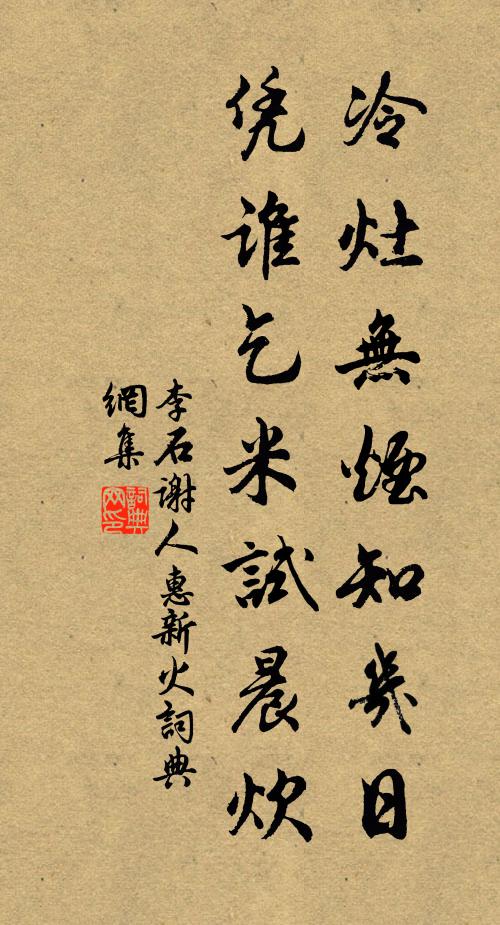 冷灶無煙知幾日
凭誰乞米試晨炊
李石謝人惠新火詞典
網集
詞典
网印